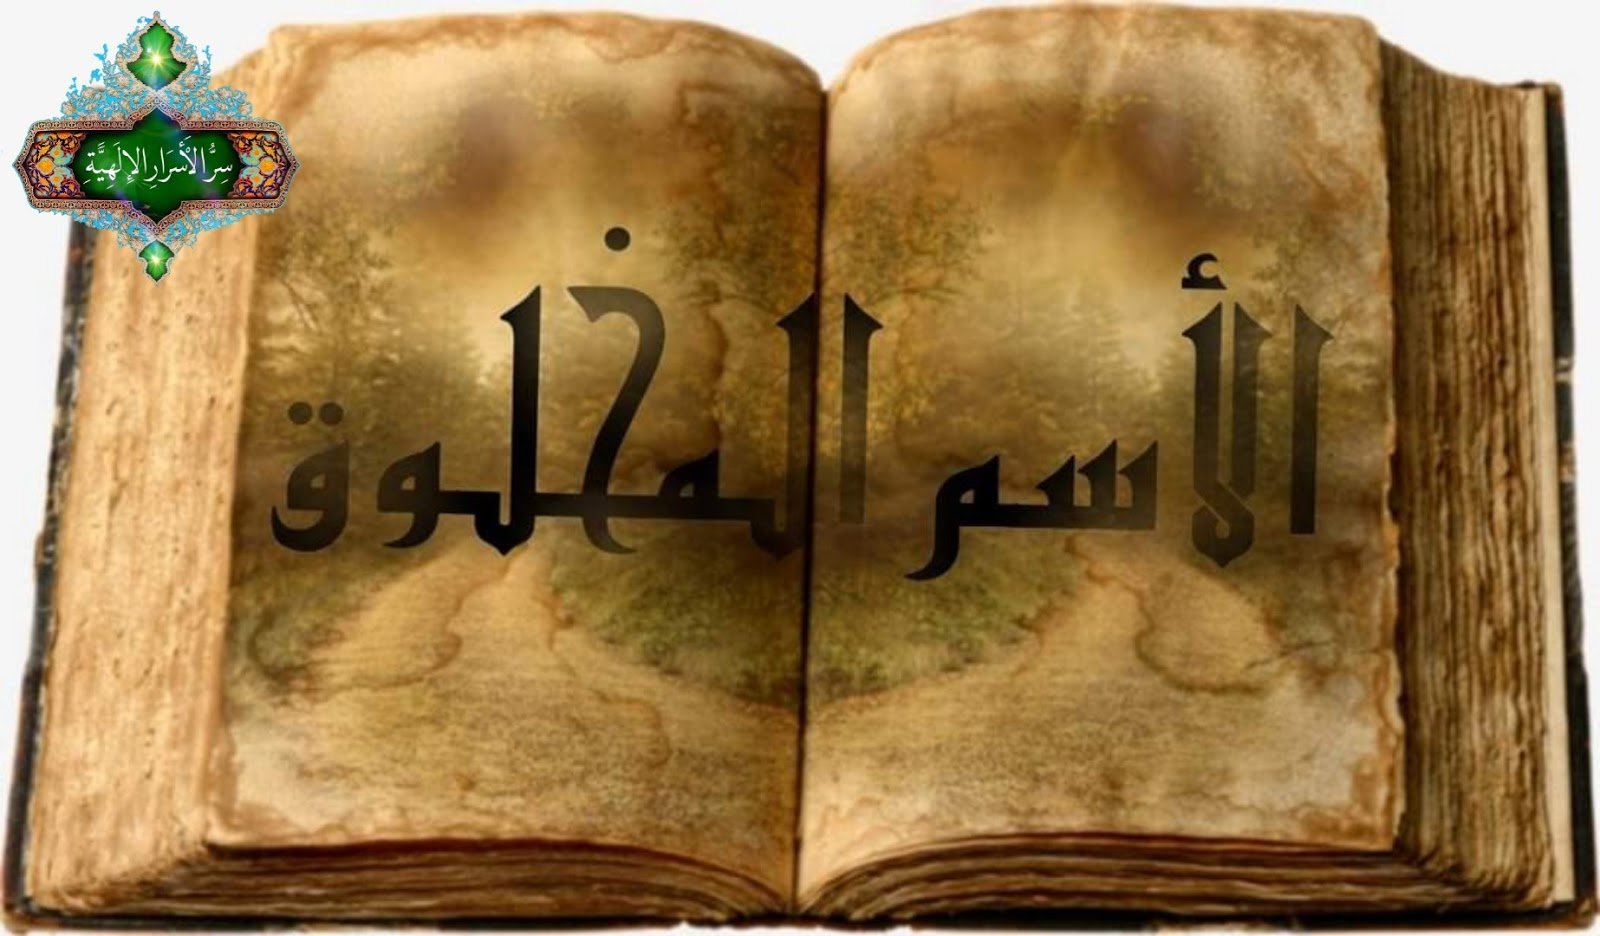 سِرُّ الْأَسْرَارِ الإِلَهِيَّةِ
الأسم المخلوق